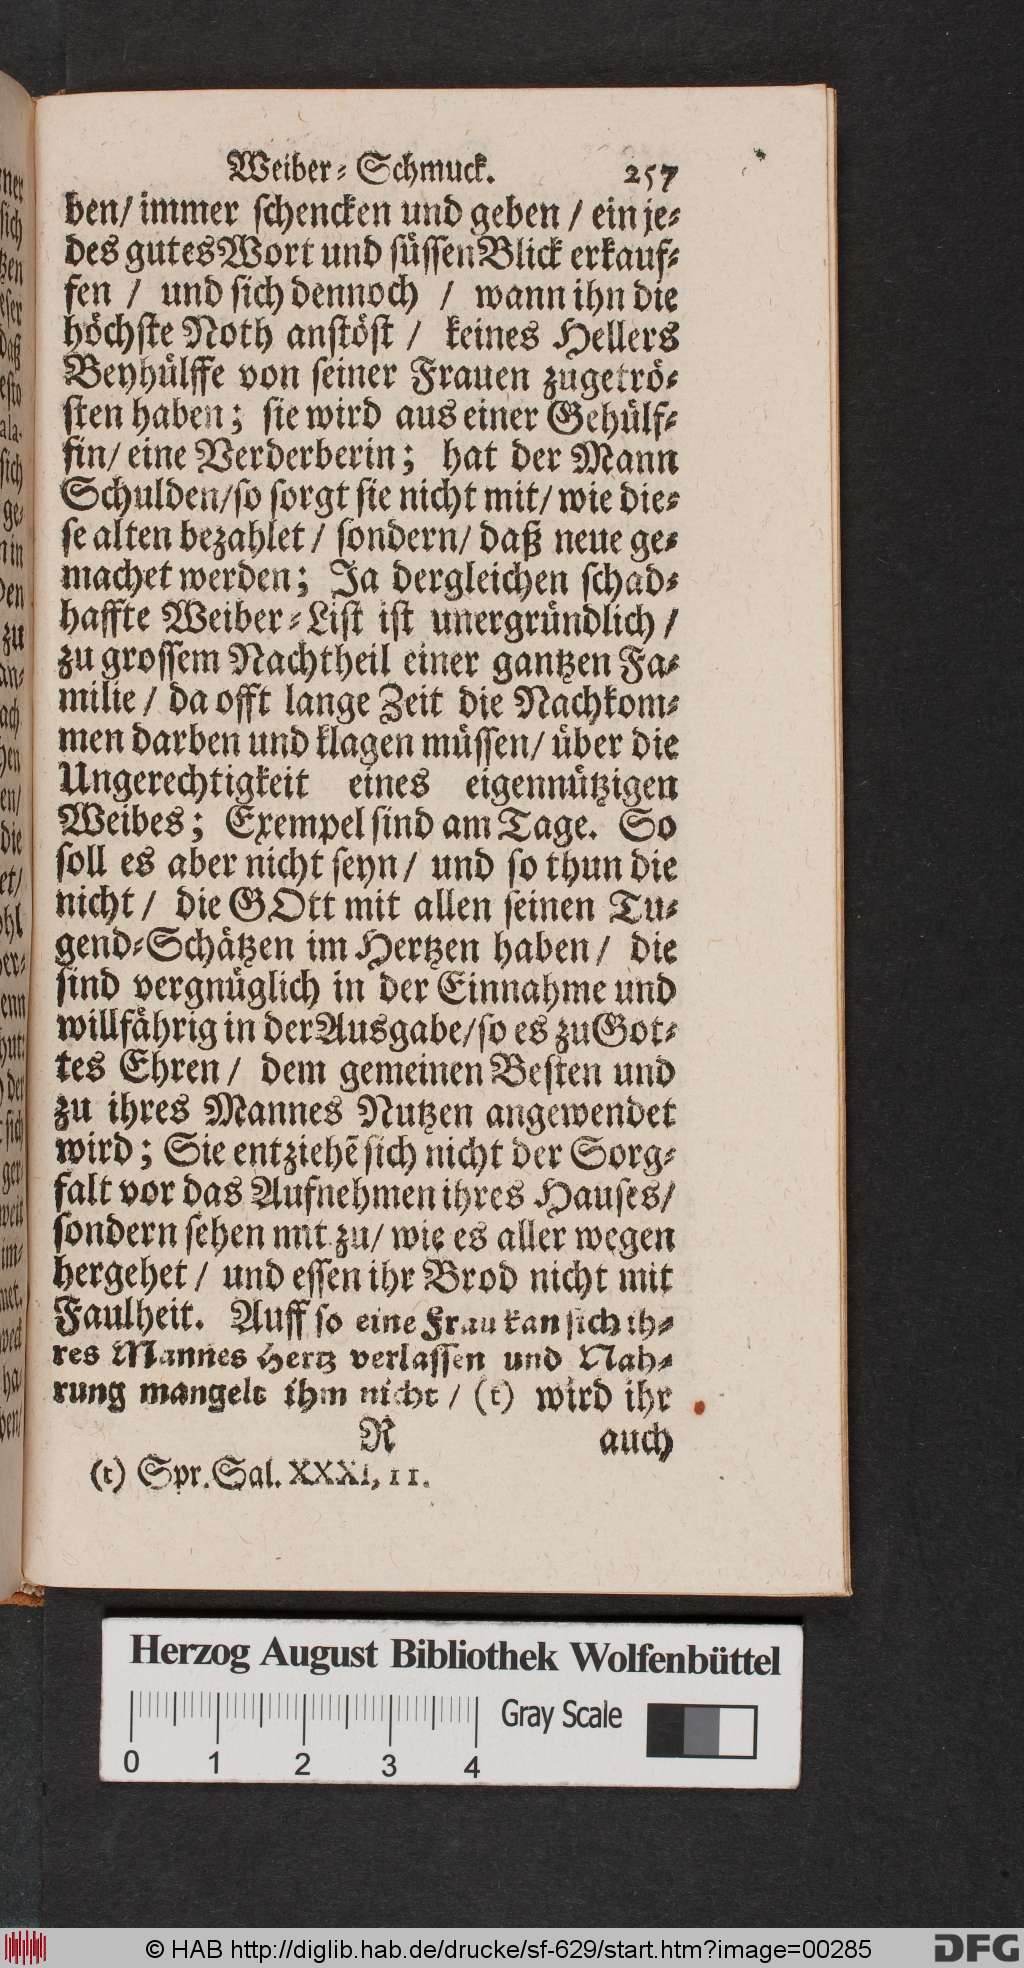 Weiber-Schmuck. 257
ben/ immer schencken und geben / ein je-
des gutes Wort und süssen Blick erkauf-
fen / und sich dennoch / wann ihn die
höchste Noth anstöst / keines Hellers
Beyhülffe von seiner Frauen zugetrö-
sten haben; sie wird aus einer Gehülf-
fin/ eine Verderberin; hat der Mann
Schulden/so sorgt sie nicht mit/ wie die-
se alten bezahlet / sondern/ daß neue ge-
machet werden; Ja dergleichen schad-
haffte Weiber-List ist unergründlich /
zu grossem Nachtheil einer gantzen Fa-
milie / da offt lange Zeit die Nachkom-
men darben und klagen müssen/ über die
Ungerechtigkeit eines eigennützigen
Weibes; Exempel sind am Tage. So
soll es aber nicht seyn/ und so thun die
nicht / die GOtt mit allen seinen Tu-
gend-Schätzen im Hertzen haben/ die
sind vergnüglich in der Einnahme und
willfährig in der Ausgabe/so es zu Got-
tes Ehren / dem gemeinen Besten und
zu ihres Mannes Nutzen angewendet
wird; Sie entziehẽ sich nicht der Sorg-
falt vor das Aufnehmen ihres Hauses/
sondern sehen mit zu/ wie es aller wegen
hergehet / und essen ihr Brod nicht mit
Faulheit. Auff so eine Frau kan sich ih-
res Mannes Hertz verlassen und Nah-
rung mangelt ihm nicht / (t) wird ihr
R auch
(t) Spr. Sal. XXXI, 11.
Herzog August Bibliothek Wolfenbüttel
Gray Scale
0 1 2 3 4
© HAB http://diglib.hab.de/drucke/sf-629/start.htm?image=00285
DFG